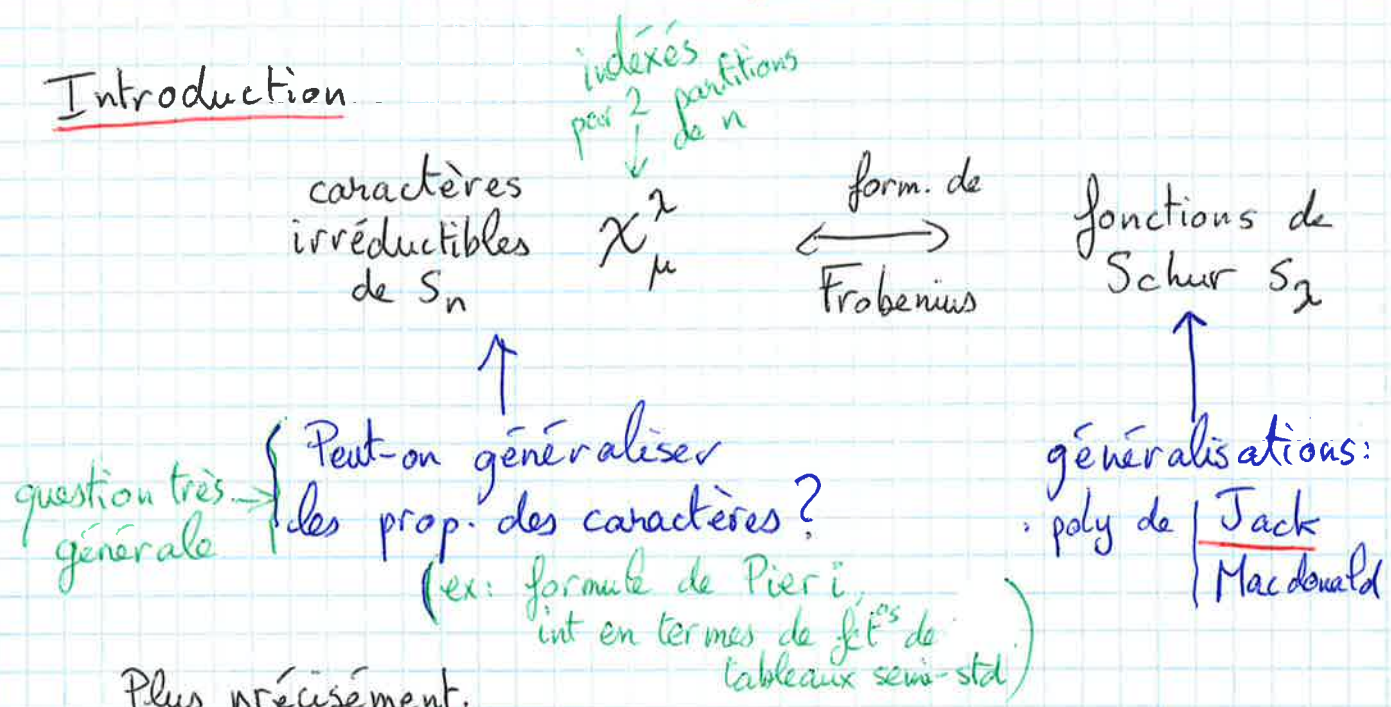 Introduction
indéxés
par 2 partitions
de n
caractères
irréductibles
de Sₙ
χ^λ_μ
form. de
Frobenius
fonctions de
Schur s_λ
question très
générale
Peut-on généraliser
les prop. des caractères ?
(ex: formule de Pieri,
int en termes de fct°s de
tableaux semi-std)
généralisations:
· poly de | Jack
Macdonald
Plus précisément.